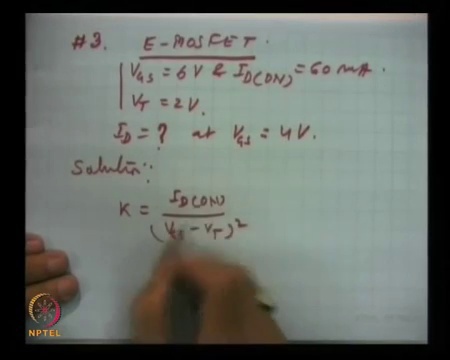 #3. E-MOSFET.
V_GS = 6V & I_D(ON) = 60 mA.
V_T = 2V.
I_D = ? at V_GS = 4V.
Solution:
K = I_D(ON) / (V_GS - V_T)²
NPTEL